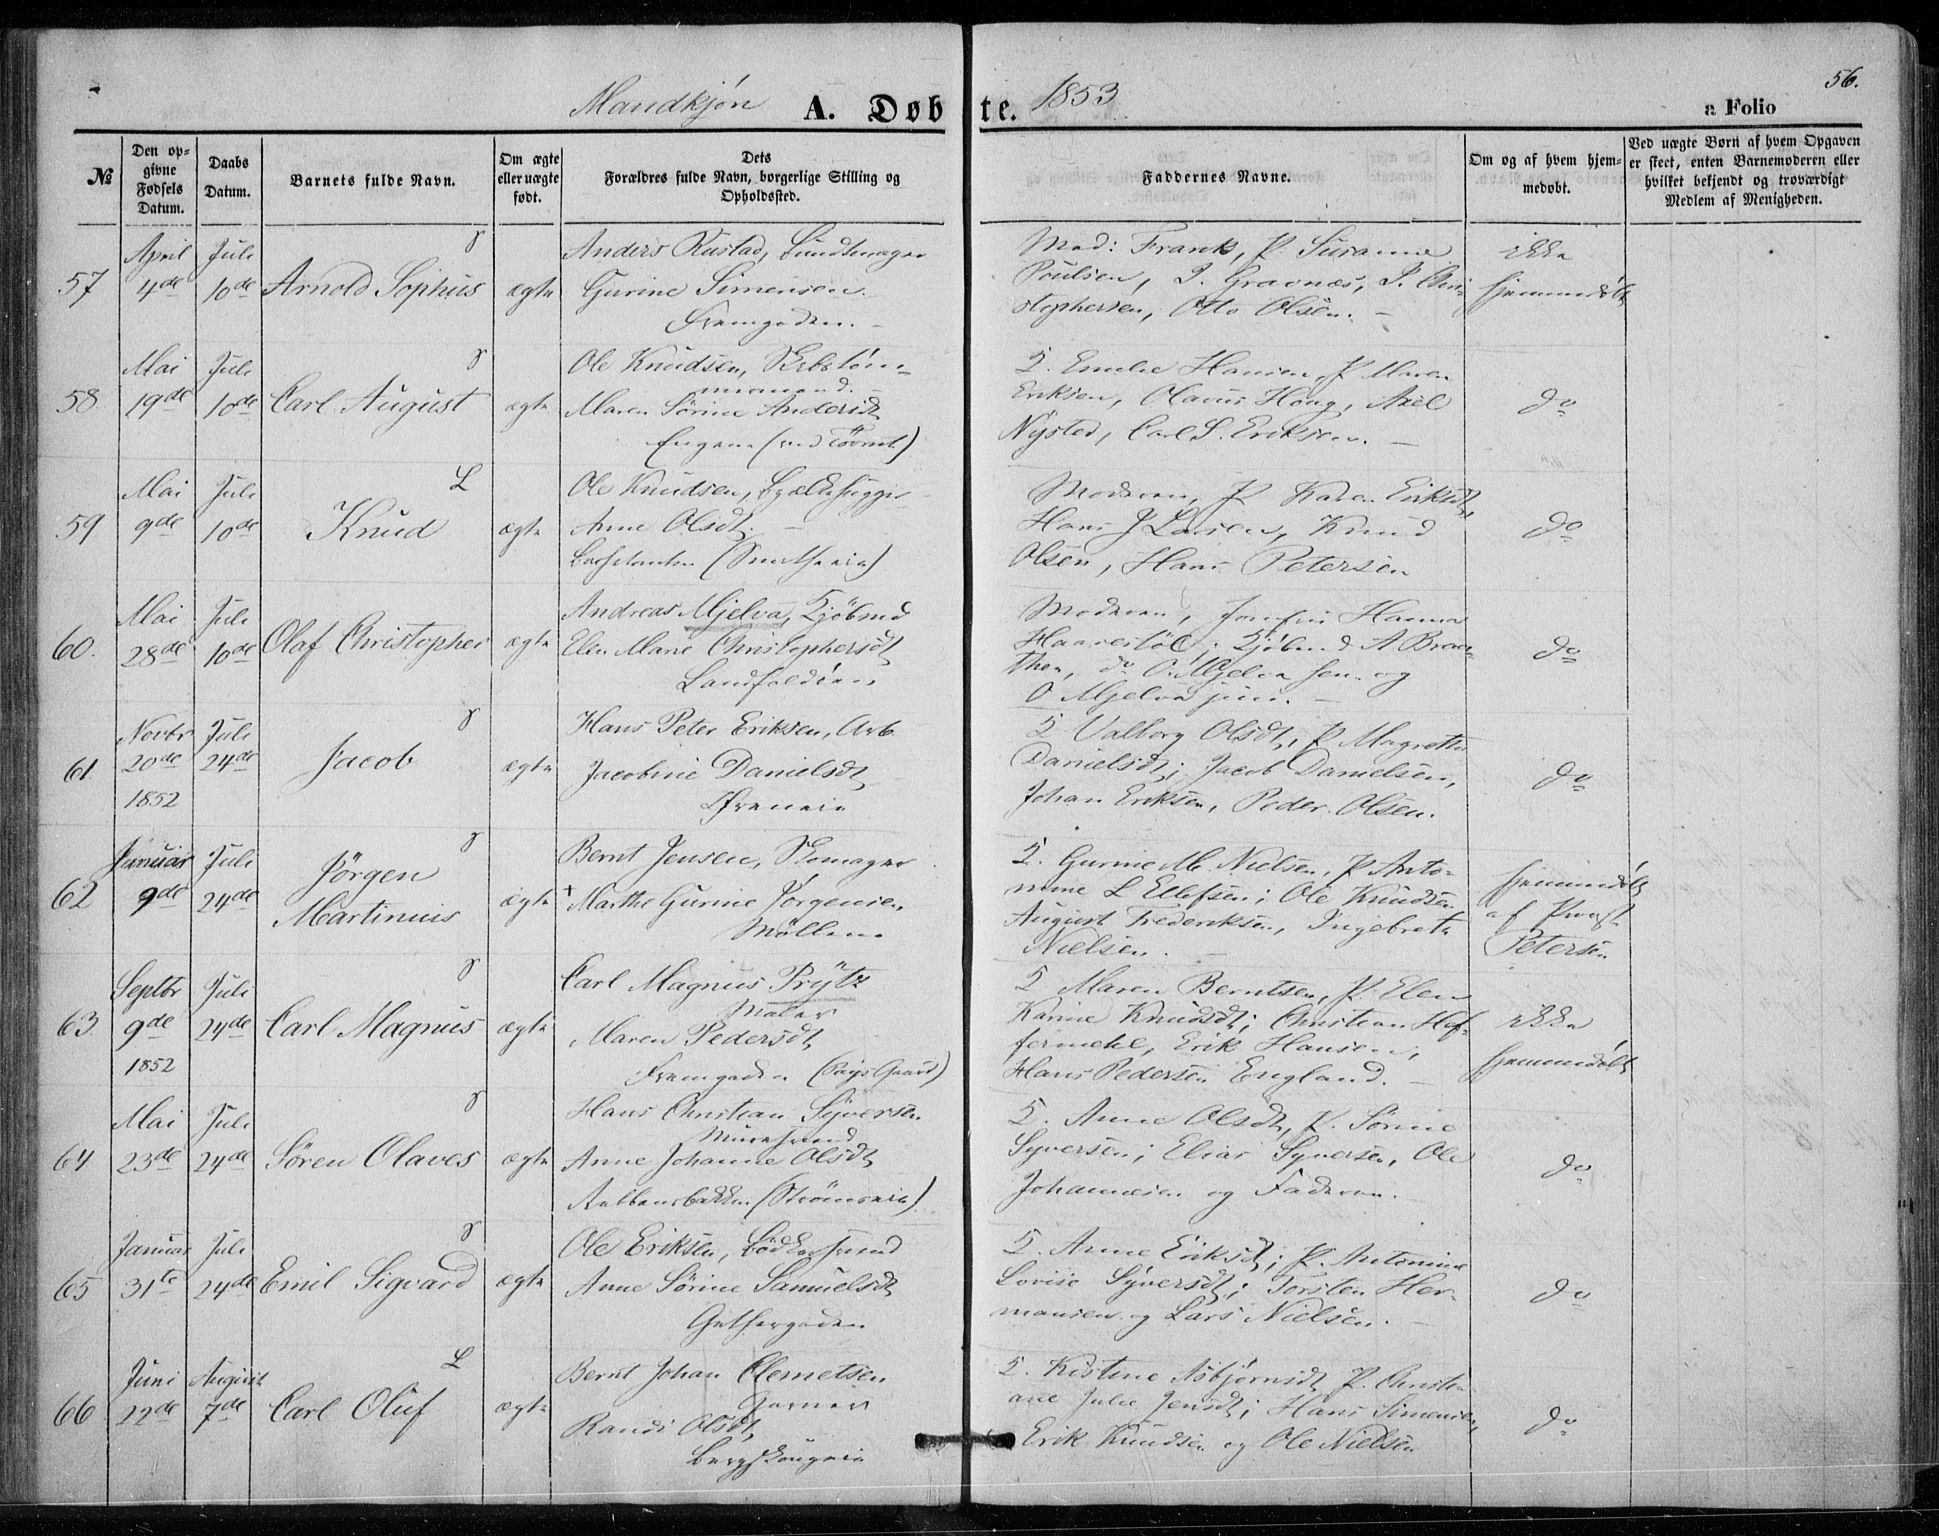 Mandkjön A. Döbte. 1853
56.
a Folio
№
Den opgivne Fødsels Datum.
Daabs Datum.
Barnets fulde Navn.
Om ægte eller uægte født.
Dets Forældres fulde Navn, borgerlige Stilling og Opholdssted.
Faddernes Navne.
Om og af hvem hjemmedøbt.
Ved uægte Børn af hvem Opgaven er skeet, enten Barnemoderen eller hvilket bekjendt og troværdigt Medlem af Menigheden.
57 April 4de Juli 10de Arnold Sophus ægte
Anders Rustad, Bundtmager
Gurine Simensen.
Tverrgaden.
Mad: Frank, P. Susanne
Poulsen, J. Gravnæs, J. Chri-
stophersen, Otto Olsen.
ikke
hjemmedøbt
58 Mai 19de Juli 10de Carl August ægte
Ole Knudsen, Skibstöm-
mermand.
Maren Sörine Andersdt
Engene (ved)
5. Emelie Hansen, P Maren
Eriksen, Olaves Houg, Axel
Nysted, Carl S. Eriksen.
do
59 Mai 9de Juli 10de Knud ægte
Ole Knudsen, Bjælkehugger
Anne Olsdt.
(Smithseie)
Moderen, P Karen Eriksdt,
Hans J Larsen, Knud
Olsen, Hans Petersen
do
60. Mai 28de Juli 10de Olaf Christopher ægte
Andreas Mjelva, Kjöbmd
Elen Marie Christophersdt
Landfaldöen
Moderen, Jomfru Hanna
Haarestöl; Kjöbmd A Braa-
then, do O. Mjelva sen. og
O Mjelva jun.
do
61. Novbr 20de 1852 Juli 24de Jacob ægte
Hans Peter Eriksen, Arb.
Jacobine Danielsdt
Öreneie
5 Valborg Olsdt, P Magrethe
Danielsdt; Jacob Danielsen,
Johan Eriksen, Peder Olsen.
do
62 Januar 9de Juli 24de Jörgen Martinius ægte
Bernt Jensen, Skomager
+ Marthe Gurine Jörgensen
Möllen
5. Gurine M. Nielsen, P Anto-
nine L Ellefsen; Ole Knudsen
August Frederiksen, Ingebret
Nielsen.
hjemmedøbt
af Provst
Petersen
63 Septbr 9de 1852 Juli 24de Carl Magnus ægte
Carl Magnus Prÿtz
Maler
Maren Pedersdt
Tverrgaden (Gaard)
5 Maren Berntsen, P. Elen
Karine Knudsdt; Christian Hef-
fermehl, Erik Hansen,
Hans Pedersen England.
ikke
hjemmedøbt
64 Mai 23de Juli 24de Sören Olaves ægte
Hans Christian Syversen
Muursvend
Anne Johanne Olsdt
(Strömseie)
5. Anne Olsdt, P. Sörine
Syversen; Elias Syversen, Ole
Johannesen og Faderen.
do
65 Januar 31te Juli 24de Emil Sigvard ægte
Ole Eriksen, Bödkersvend
Anne Sörine Samuelsdt
Gethergaden
5. Anne Eriksdt; P. Antonine
Lovise Syversdt; Torsten Her-
mansen og Lars Nielsen.
do
66 Juni 22de August 7de Carl Oluf ægte
Bernt Johan Clemetsen
Garver
Randi Olsdt,
Bergskougeie
5. Kistine Asbjörnsdt, P. Christi-
ane Julie Jensdt; Hans Simensen,
Erik Knudsen og Ole Nielsen
do